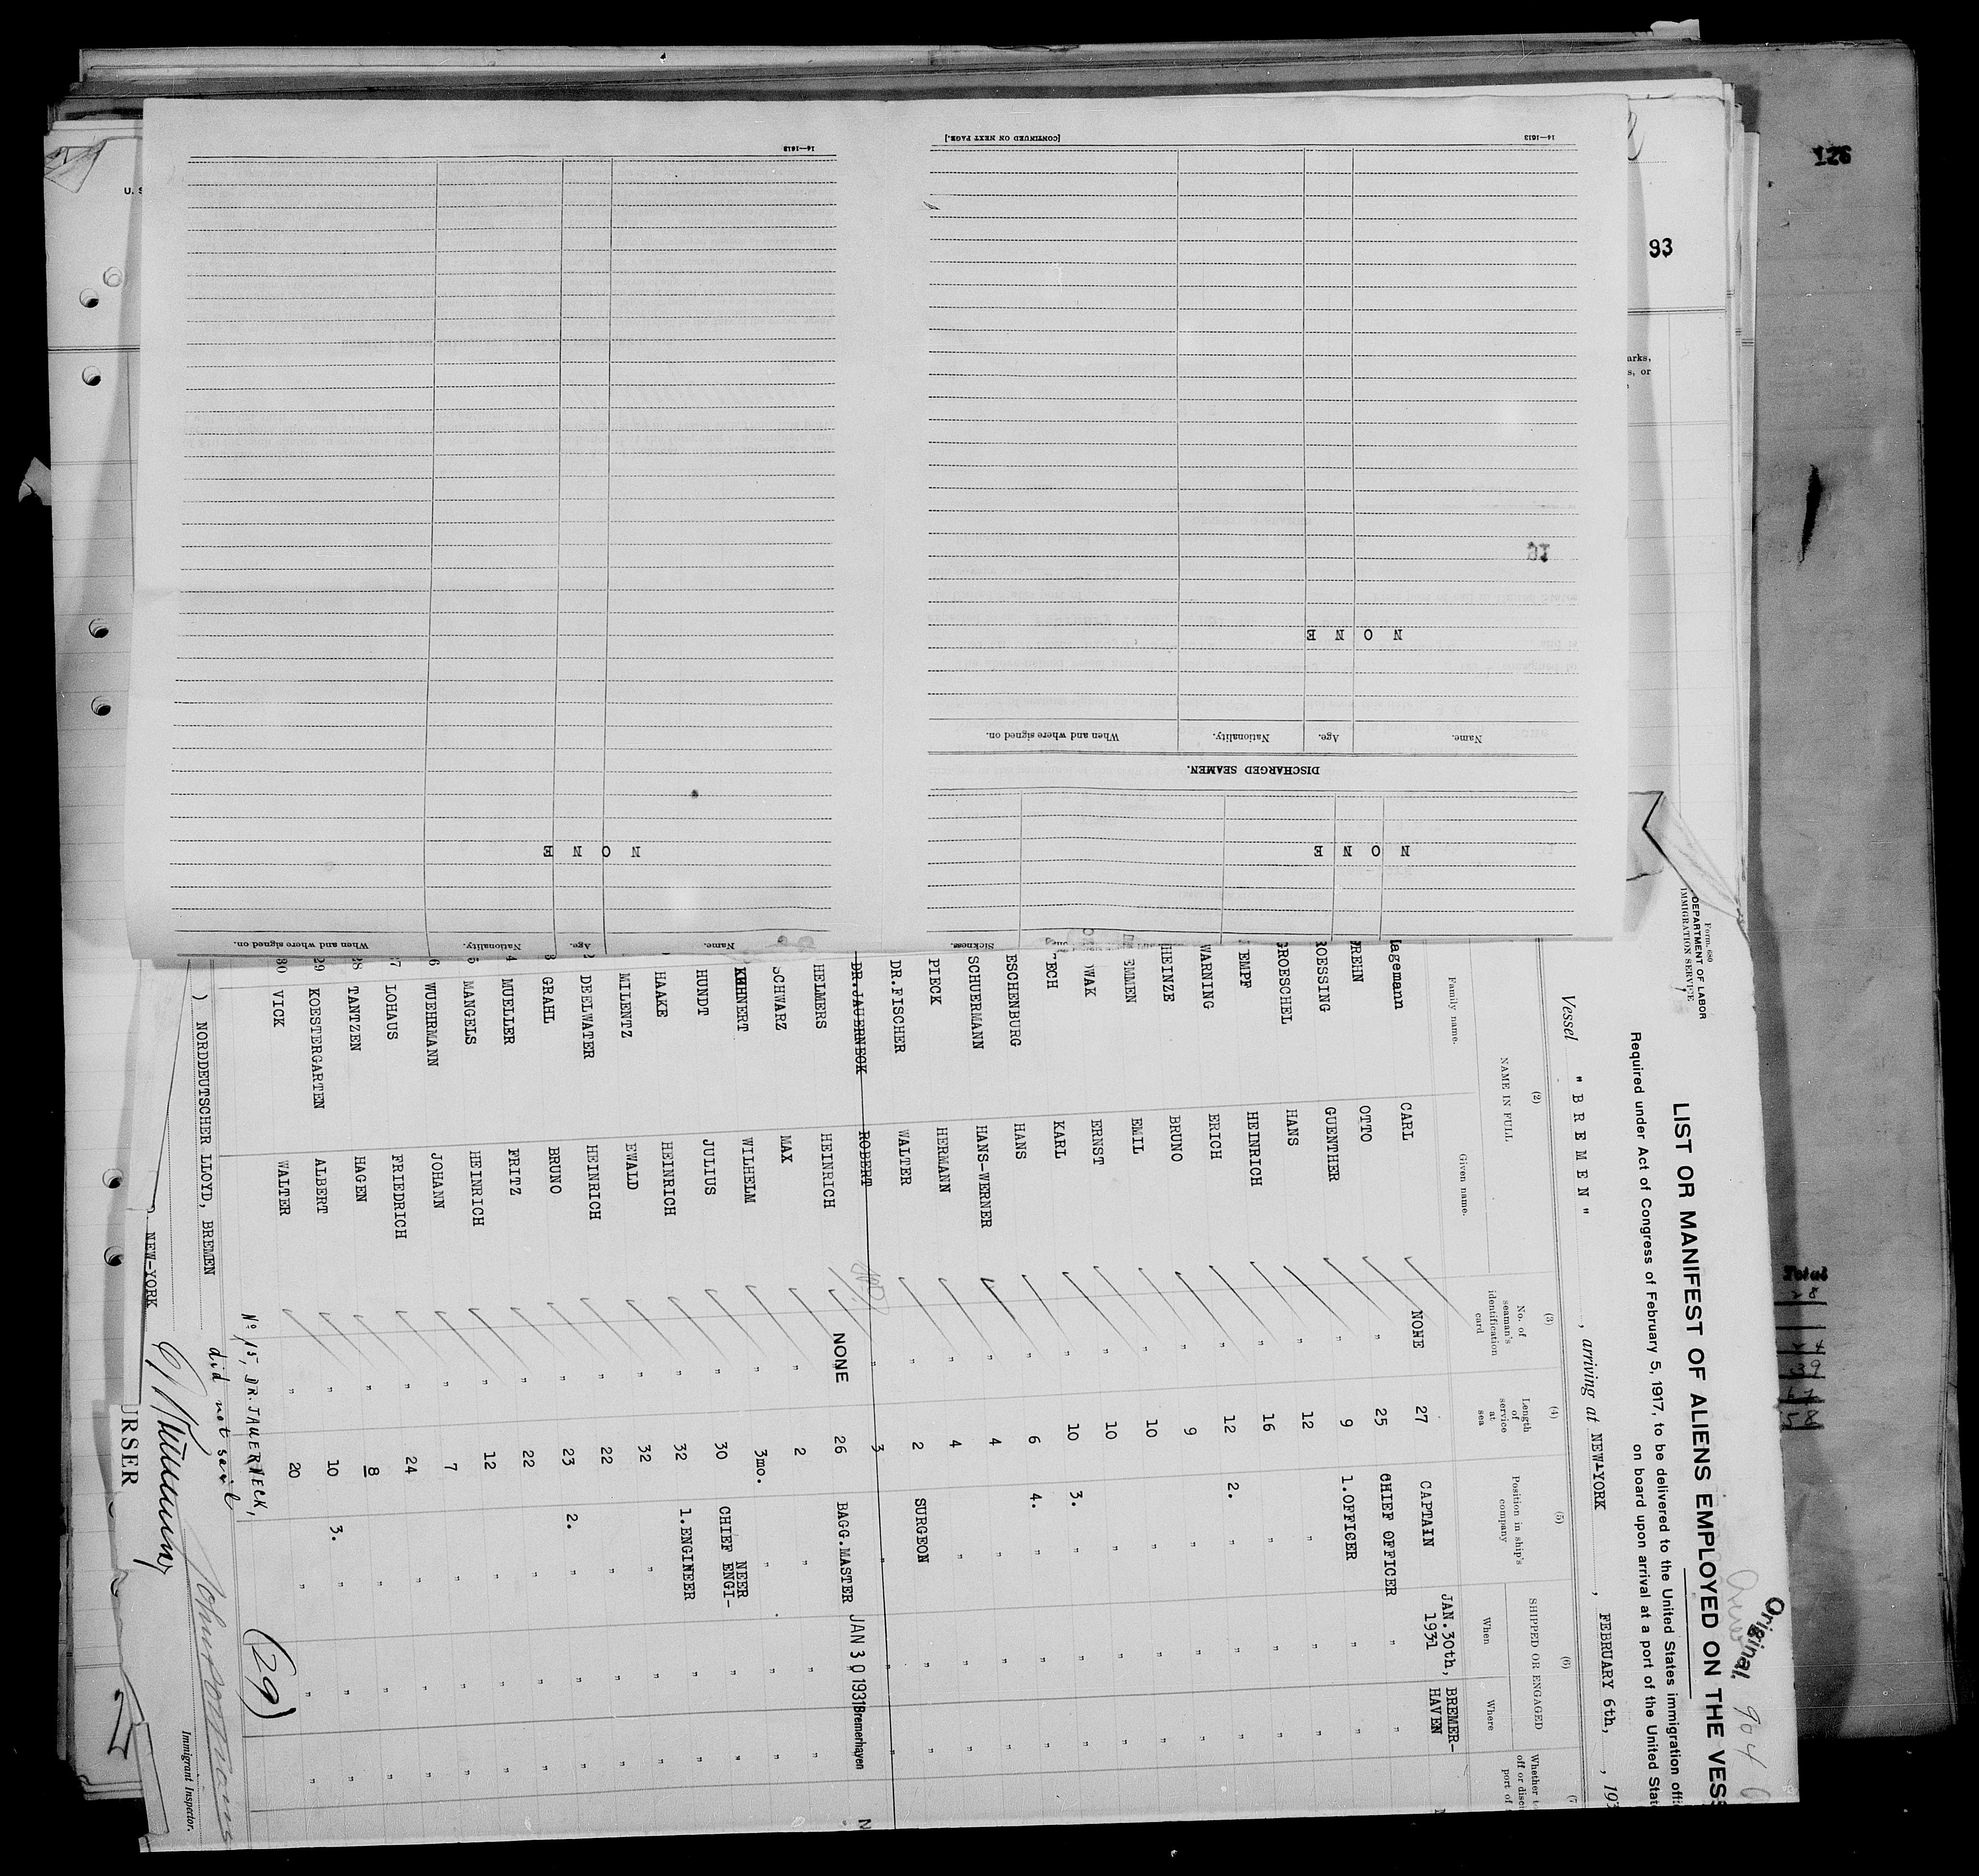 126
93
U. S
arks,
s, or
[CONTINUED ON NEXT PAGE.]
14—1613
14—1613
NONE
Name.
Age.
Nationality.
When and where signed on.
DISCHARGED SEAMEN.
NONE
Sickness.
NONE
Name.
Age.
Nationality.
When and where signed on.
Total
Form 680
DEPARTMENT OF LABOR
IMMIGRATION SERVICE
Original
904
LIST OR MANIFEST OF ALIENS EMPLOYED ON THE VESS
Required under Act of Congress of February 5, 1917, to be delivered to the United States immigration offi
on board upon arrival at a port of the United Stat
Vessel "BREMEN", arriving at NEW-YORK, FEBRUARY 6th, , 193
(2) (3) (4) (5) (6) (7
NAME IN FULL No. of seaman's identification card Length of service at sea Position in ship's company SHIPPED OR ENGAGED
Family name. Given name. When Where
agemann CARL NONE 27 CAPTAIN JAN.30th, 1931 BREMER-HAVEN
REHN OTTO " 25 CHIEF OFFICER " "
ROESSING GUENTHER " 9 1.OFFICER " "
GROESCHEL HANS " 12 " " "
EMPF HEINRICH " 16 " " "
WARNING ERICH " 12 2. " " "
HEINZE BRUNO " 9 " " "
EMMEN EMIL " 10 " " "
OWAK ERNST " 10 " " "
ECH KARL " 10 3. " " "
ESCHENBURG HANS " 6 4. " " "
SCHUERMANN HANS-WERNER " 4 " " "
PIECK HERMANN " 4 " " "
DR.FISCHER WALTER " 2 SURGEON " "
DR.JAUERNECK ROBERT " 3 " "
HELMERS HEINRICH NONE 26 BAGG.MASTER JAN 30 1931 Bremerhaven
SCHWARZ MAX " 2 " " "
KUHNERT WILHELM " 3mo. " " "
HUNDT JULIUS " 30 CHIEF ENGI-NEER " "
HAAKE HEINRICH " 32 1.ENGINEER " "
MILENTZ EWALD " 32 " " "
DEELWATER HEINRICH " 22 " " "
GRAHL BRUNO " 23 2. " " "
MUELLER FRITZ " 22 " " "
MANGELS HEINRICH " 12 " " "
WUEHRMANN JOHANN " 7 " " "
LOHAUS FRIEDRICH " 24 " " "
TANTZEN HAGEN " 8 " " "
29 KOESTERGARTEN ALBERT " 10 3. " " "
30 VICK WALTER " 20 " " "
No 15, DR. JAUERNECK,
did not sail
(29)
) NORDDEUTSCHER LLOYD, BREMEN
NEW-YORK
Immigrant Inspector.
URSER